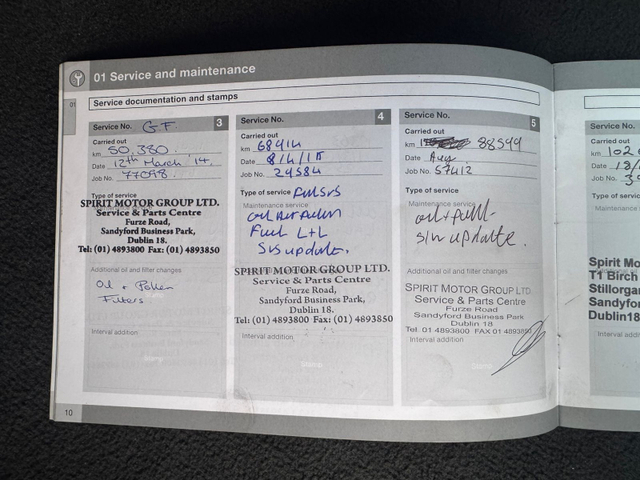 01 Service and maintenance
01
Service documentation and stamps
Service No. G.F. 3
Carried out
km 50,380
Date 12th March '14.
Job No. 77098
Type of service
SPIRIT MOTOR GROUP LTD.
Service & Parts Centre
Furze Road,
Sandyford Business Park,
Dublin 18.
Tel: (01) 4893800 Fax: (01) 4893850
Additional oil and filter changes
Oil + Pollen
Filters
Interval addition
10
Service No. 4
Carried out
km 68414
Date 8/4/15
Job No. 29584
Type of service
Maintenance service
oil Air pollen
Fuel L+L
Svs update.
SPIRIT MOTOR GROUP LTD.
Service & Parts Centre
Furze Road,
Sandyford Business Park,
Dublin 18.
Tel: (01) 4893800 Fax: (01) 4893850
Interval addition
Stamp
Service No. 5
Carried out
km 88599
Date Aug
Job No. 57412
Type of service
Maintenance service
oil + poll-
s/w update.
Additional oil and filter changes
SPIRIT MOTOR GROUP LTD.
Service & Parts Centre
Furze Road
Sandyford Business Park
Dublin 18
Tel. 01 4893800 FAX 01 4893850
Interval addition
Stamp
Service No.
Carried out
km 102
Date 18/
Job No. 3
Type of
Spirit Mo
T1 Birch
Stillorgan
Sandyfo
Dublin18